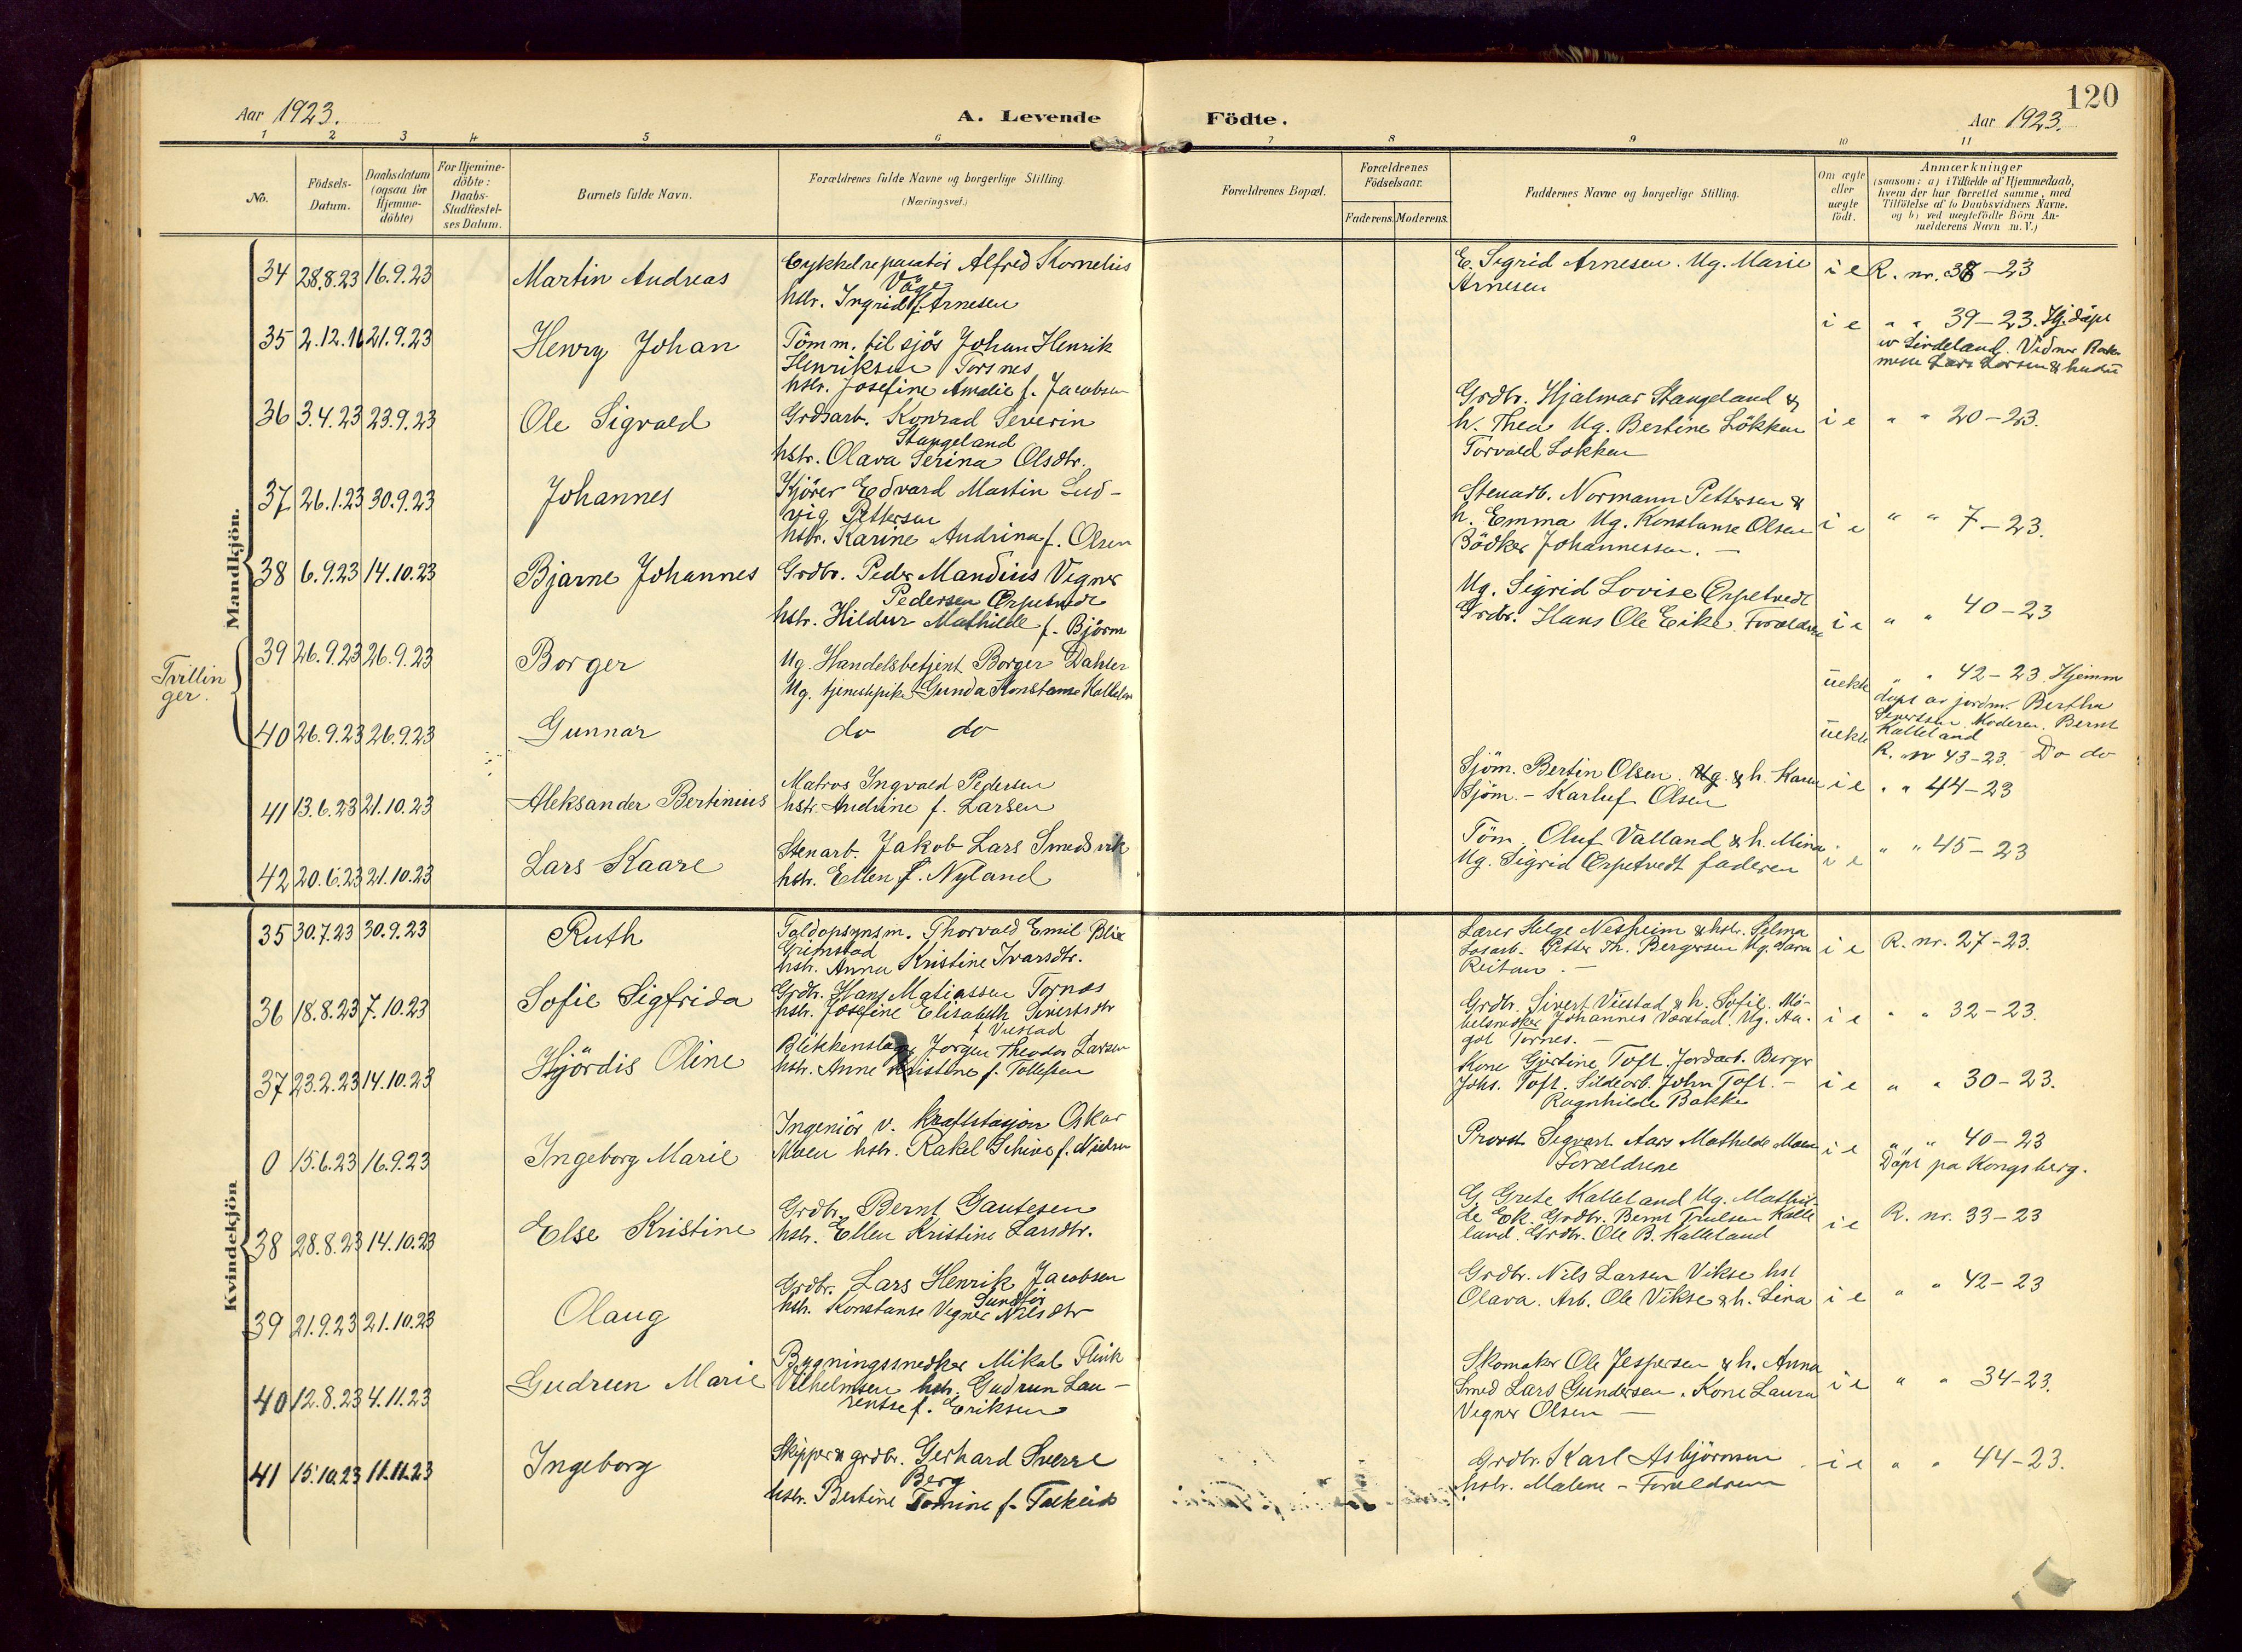 120
Aar 1923.
A. Levende Födte.
Aar 1923.
1 2 3 4 5 6 7 8 9 10 11
No.
Födsels-
Datum.
Daabsdatum
(ogsaa for
Hjemme-
döbte)
For Hjemme-
döbte:
Daabs-
Stadfæstel-
ses Datum.
Barnets fulde Navn.
Forældrenes fulde Navne og borgerlige Stilling.
(Næringsvei.)
Forældrenes Bopæl.
Forældrenes
Födselsaar.
Faderens. Moderens.
Faddernes Navne og borgerlige Stilling.
Om ægte
eller
uægte
födt.
Anmærkninger
(saasom: a) i Tilfælde af Hjemmedaab,
hvem der har forrettet samme, med
Tilföielse af to Daabsvidners Navne.
og b) ved uægtefödte Börn An-
melderens Navn m. V.)
Mandkjön.
34 28.8.23 16.9.23 Martin Andreas
Cykkelreparatör Alfred Kornelius
Våge
hstr. Ingrid f. Arnesen
E. Sigrid Arnesen. Ug. Marie
Arnesen
i e R. nr. 38-23
35 2.12.16 21.9.23 Henry Johan
Tömm. til sjös Johan Henrik
Henriksen Torsnes
hstr. Josefine Amalie f. Jacobsen
i e " " 39-23. Hj. döpt
Vidner
Lars Larsen &
36 3.4.23 23.9.23 Ole Sigvald
Grdsarb. Konrad Severin
Stangeland
hstr. Olava Serina Olsdtr.
Grdbr. Hjalmar Stangeland &
h. Thea Ug. Bertine Lökken
Torvald Lökken
i e " " 20-23.
37 26.1.23 30.9.23 Johannes
Kjörer Edvard Martin Lud-
vig Pettersen
hstr. Karine Andrina f. Olsen
Stenarb. Normann Pettersen &
h. Emma Ug. Konstanse Olsen
Bödker Johannessen. -
i e " " 7-23.
38 6.9.23 14.10.23 Bjarne Johannes
Grdbr. Peder Mandius Vegner
Pedersen Erpetvedt
hstr. Hildur Mathilde f. Björm
Ug. Sigrid Lovise Erpetvedt
Grdbr. Hans Ole Eike. Forældrene
i e " " 40-23
Tvillin
ger.
39 26.9.23 26.9.23 Borger
Ug. Handelsbetjent Borger Dahler
Ug. tjenestpike Gunda Konstanse Kalleland
uekte " " 42-23. Hjemm
döpt av jordm. Bertha
Sivertsen. Moderen. Bernt
Kalleland
40 26.9.23 26.9.23 Gunnar
do do
uekte R. nr 43-23. Do do
41 13.6.23 21.10.23 Aleksander Bertinius
Matros Ingvald Pedersen
hstr. Andrine f. Larsen
Sjöm. Bertin Olsen. Ug. & h. Karen
Sjöm. - Karluf Olsen
i e " " 44-23
42 20.6.23 21.10.23 Lars Kaare
Stenarb. Jakob Lars Smedsvik
hstr. Ellen f. Nyland
Töm. Oluf Valland & h. Mina
Ug. Sigrid Erpetvedt faderen
i e " " 45-23
Kvindekjön
35 30.7.23 30.9.23 Ruth
Toldopsynsm. Thorvald Emil Blix
Grimstad
hstr. Anna Kristine Ivarsdtr.
Lærer Helge Nesheim & hstr. Selma
Losarb. Petter Th. Bergersen Ug. Sara
Reitan. -
i e R. nr. 27-23.
36 18.8.23 7.10.23 Sofie Sigfrida
Grdbr. Hans Matiassen Tornes
hstr. Josefine Elisabeth Sivertsdtr
f Viestad
Grdbr. Sivert Viestad & h. Sofie. Mö-
belsnedker Johannes Værstad. Ug. Aa-
got Tornes. -
i e " " 32-23.
37 23.2.23 14.10.23 Hjördis Oline
Blikkenslager Jörgen Theodor Larsen
hstr. Anne Kristine f. Tollefsen
Kone Gjertine Toft. Jordarb. Berge
Johs. Toft. Sildearb. John Toft. -
Ragnhilde Bakke
i e " " 30-23.
0 15.6.23 16.9.23 Ingeborg Marie
Ingeniör v. Kraftstasjon Oskar
Moen hstr. Rakel Schive f. Nielsen
Provst Sigvart Aars Mathilde Moen
Forældrene
i e " " 40-23
Döpt pa Kongsberg.
38 28.8.23 14.10.23 Else Kristine
Grdbr. Bernt Gautesen
hstr. Ellen Kristine Larsdtr.
G. Grete Kalleland Ug. Mathil-
de Ek. Grdbr. Bernt Truelsen Kalle
land. Grdbr. Ole B. Kalleland
i e R. nr. 33-23
39 21.9.23 21.10.23 Olaug
Grdbr. Lars Henrik Jacobsen
Sundför
hstr. Konstanse Vegner Nilsdtr
Grdbr. Nils Larsen Vikse hst
Olava. Arb. Ole Vikse & h. Lina
i e " " 42-23
40 12.8.23 4.11.23 Gudrun Marie
Bygningssnedker Mikal Flink
Vilhelmsen hstr. Gudrun Lau-
rentse f. Eriksen
Skomaker Ole Jespersen & h. Anna
Smed Lars Gundersen. Kone Laura
Vegner Olsen -
i e " " 34-23.
41 15.10.23 11.11.23 Ingeborg
Skipper & grdbr. Gerhard Sverre
Berg
hstr. Bertine Tomine f. Falkeid
Grdbr. Karl Asbjörnsen
hstr. Malene - Forældrene
i e " " 44-23.